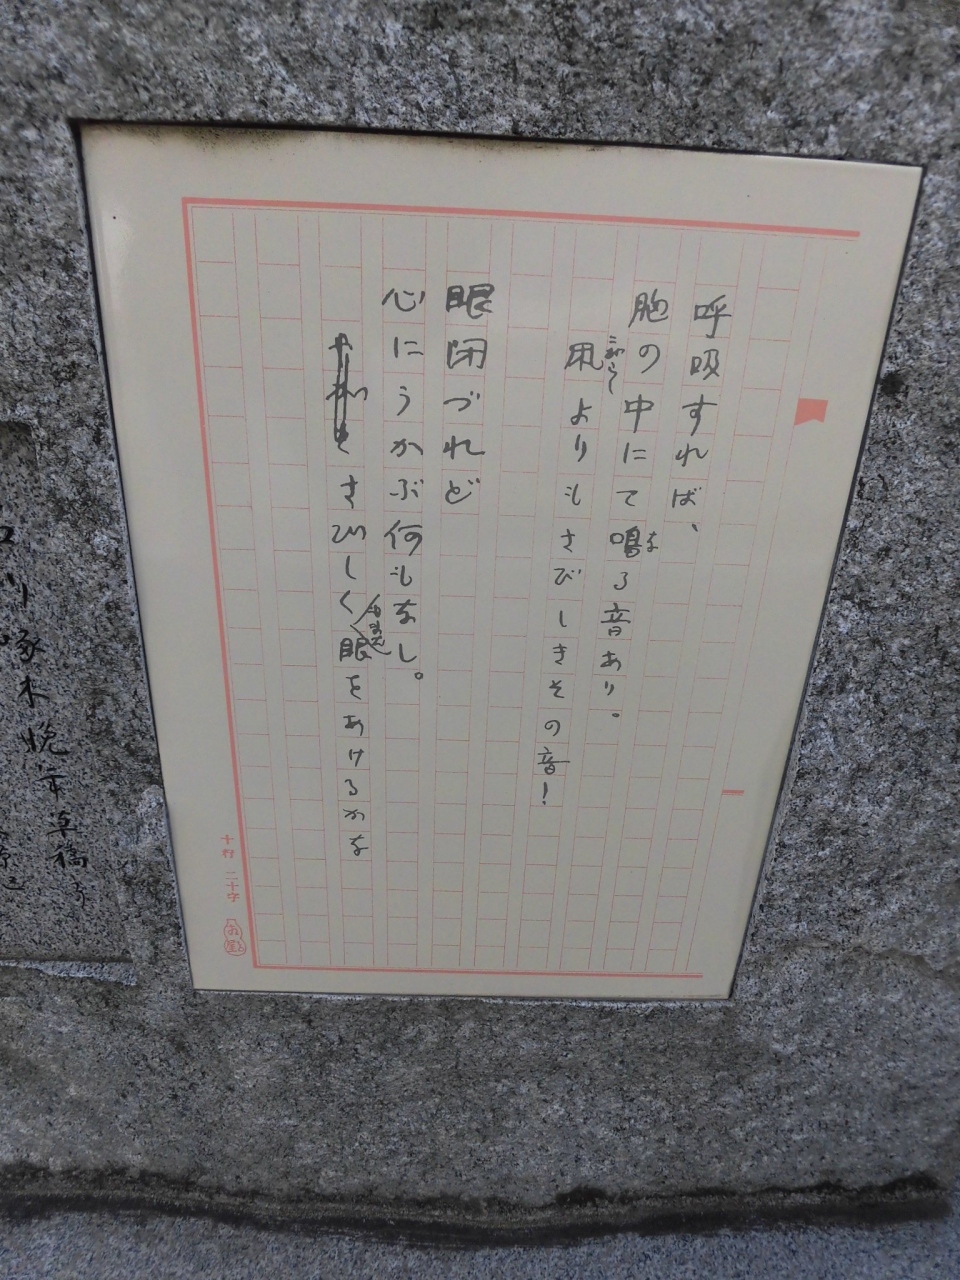 呼吸すれば、
胸の中にて鳴る音あり。
な
凩よりもさびしきその音!
こがらし
眼閉づれど
心にうかぶ何もなし。
さびしくもまた眼をあけるかな
十行二十字
川啄木晩年草稿